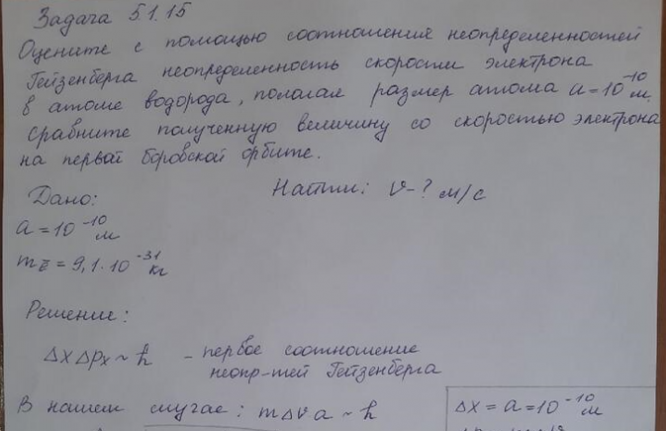 Задача 5.1.15
Оцените с помощью соотношения неопределенностей
Гейзенберга неопределенность скорости электрона
в атоме водорода, полагая размер атома a = 10⁻¹⁰ м.
Сравните полученную величину со скоростью электрона
на первой боровской орбите.
Дано: Найти: v - ? м/с
a = 10⁻¹⁰ м
mē = 9,1·10⁻³¹ кг
Решение:
Δx Δpx ~ ħ - первое соотношение
неопр-тей Гейзенберга
В нашем случае: mΔv a ~ ħ
Δx = a = 10⁻¹⁰ м